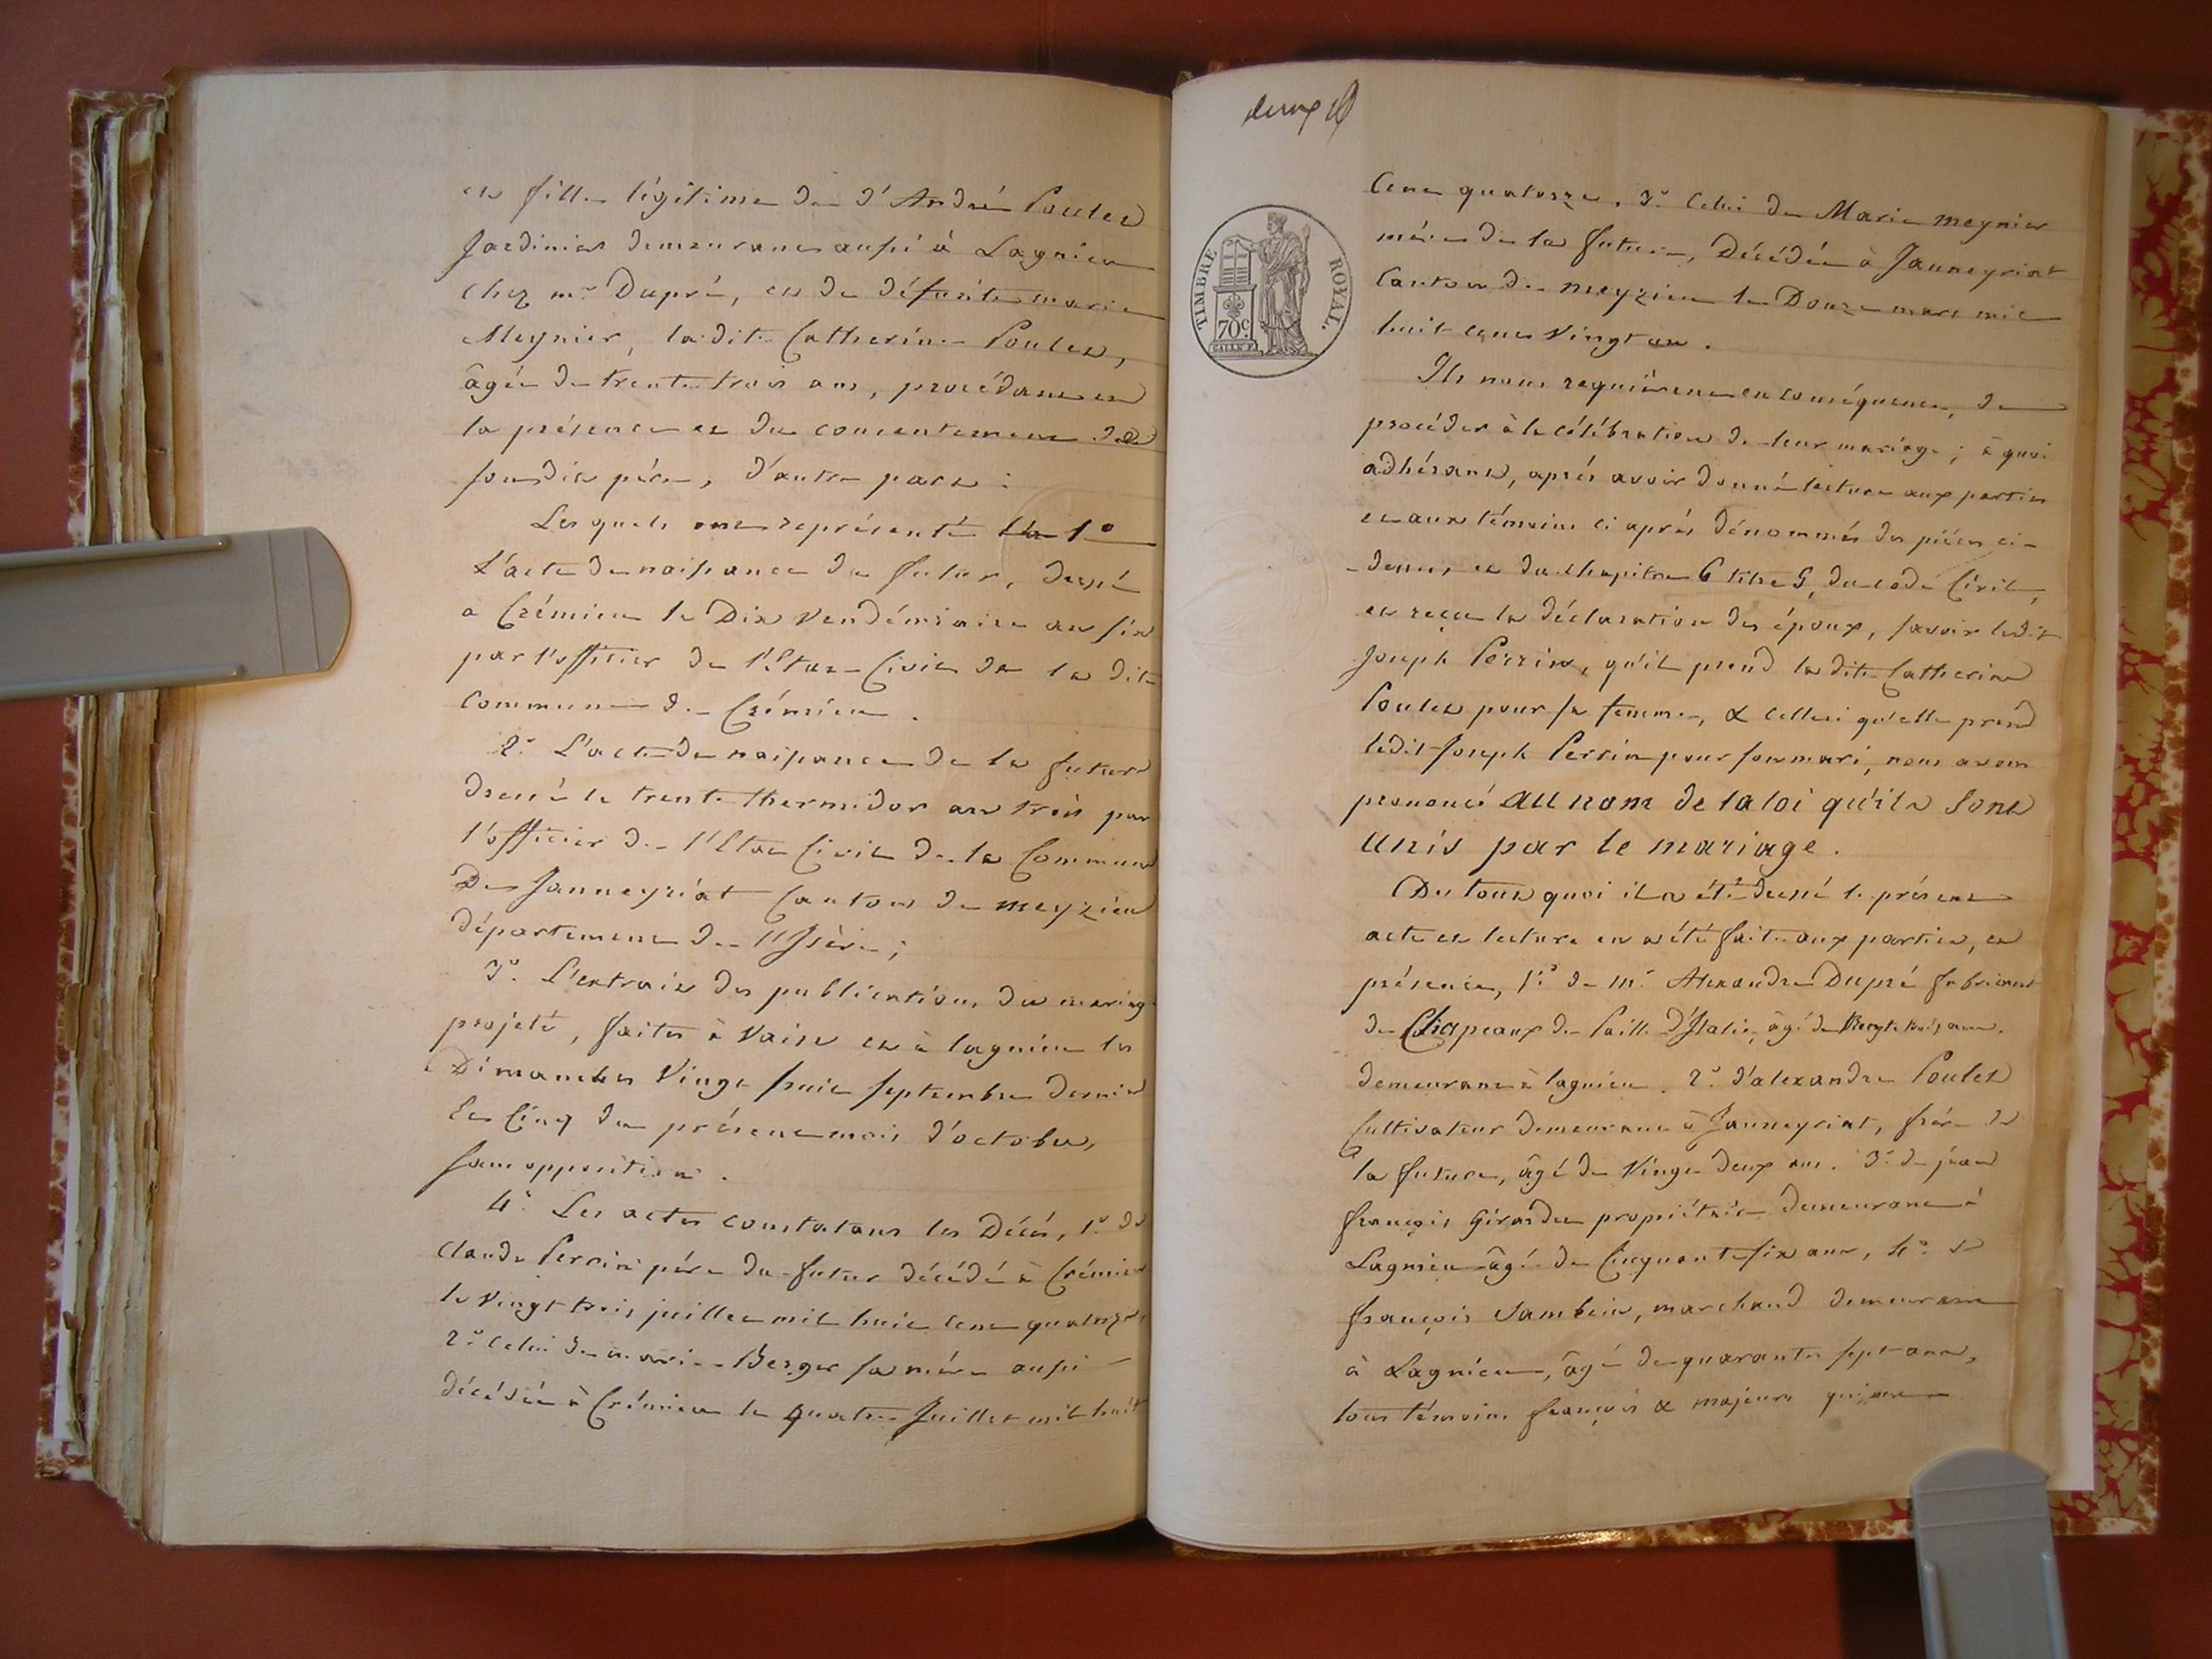 et fille légitime de d'André Poulet
Jardinier demeurant aussi à Lagnieu
chez mr. Dupré, et de défunte marie
Meynier, ladite Catherine Poulet,
âgée de trente trois ans, procédant en
la présence et du consentement de
sondit père, d'autre part :
Lesquels ont représenté 1o
L'acte de naissance du futur, dressé
a Crémieu le Dix Vendémiaire an six
par l'officier de l'Etat-Civil de la dite
commune de Crémieu.
2o. L'acte de naissance de la future
dressé le trente thermidor an trois par
l'officier de l'Etat Civil de la Commune
De Janneyriat Canton de meyzieu
département de l'Isère ;
3o. L'extrait des publications du mariage
projeté, faites à Vaise et à lagnieu les
Dimanches Vingt huit septembre dernier
Et Cinq du présent mois d'octobre,
sans opposition.
4o. Les actes constatans les Décés, 1o. de
Claude Perrin père du futur décédé à Crémieu
le Vingt trois juillet mil huit cent quatorze,
2o. Celui de marie Berger sa mère aussi
décédée à Crémieu le quatre Juillet mil huit
Cent quatorze, 3o. Celui de Marie meynier
mère de la future, Décédée à Janneyriat
Canton de meyzieu le Douze mars mil
huit cent Vingt un.
Ils nous requièrent en conséquence, de
procéder à la célébration de leur mariage ; à quoi
adhérant, après avoir donné lecture aux parties
et aux témoins ci après dénommés des pièces ci-
-dessus, et du chapitre 6 titre 5, du code Civil,
et reçu la déclaration des époux, savoir ledit
Joseph Perrin, qu'il prend la dite Catherine
Poulet pour sa femme, & celleci qu'elle prend
ledit Joseph Perrin pour son mari, nous avons
prononcé au nom de la loi qu'ils sont
unis par le mariage.
De tout quoi il a été dressé le présent
acte et lecture en a été faite aux parties, en
présence, 1o. de mr. Alexandre Dupré fabricant
de Chapeaux de Paille d'Italie, âgé de trois ans.
demeurant à lagnieu. 2o. d'alexandre Poulet
Cultivateur demeurant à Janneyriat, frère de
la future, âgé de Vingt Deux ans. 3o. de jean
françois Girardu propriétaire demeurant à
Lagnieu âgé de Cinquante six ans, 4o. de
françois Sambein, marchand demeurant
à Lagnieu, âgé de quarante sept ans,
tous témoins françois & majeurs qui ont
TIMBRE ROYAL.
70c.